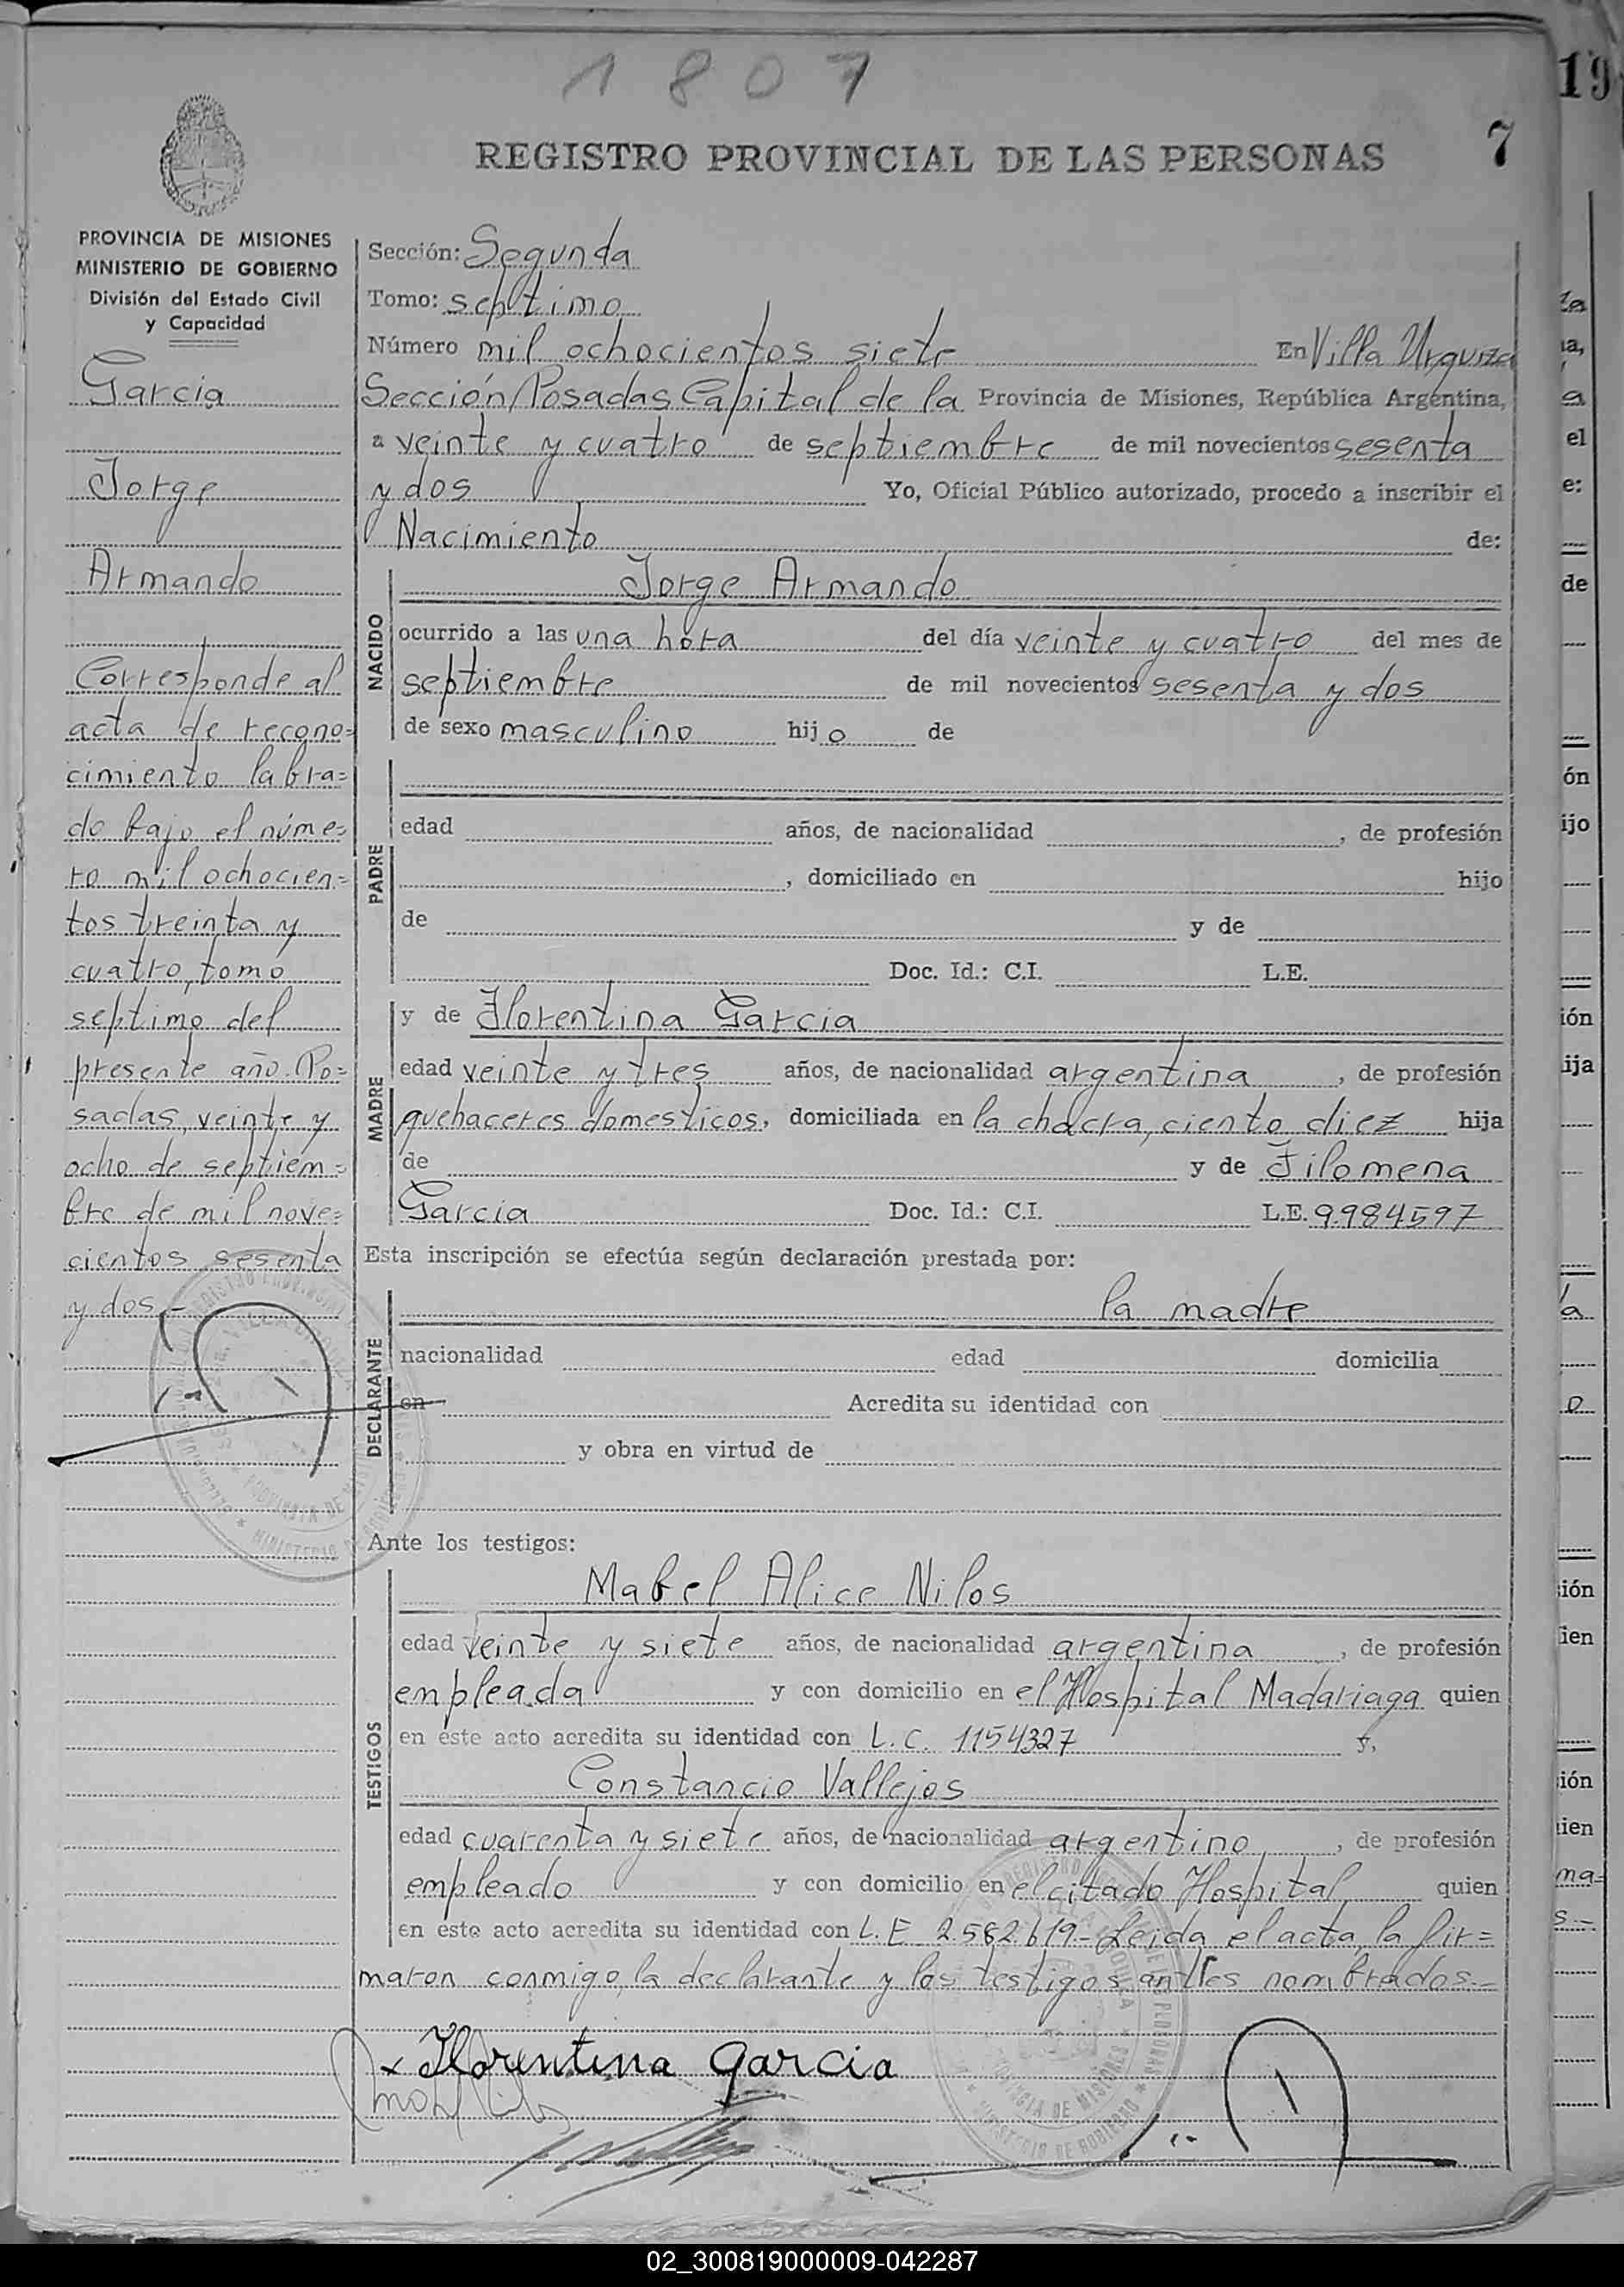 1807
REGISTRO PROVINCIAL DE LAS PERSONAS
7
19
PROVINCIA DE MISIONES
MINISTERIO DE GOBIERNO
División del Estado Civil
y Capacidad
Garcia
Jorge
Armando
Corresponde al
acta de recono=
cimiento labra=
do bajo el núme=
ro mil ochocien=
tos treinta y
cuatro, tomo
septimo del
presente año. Po=
sadas, veinte y
ocho de septiem=
bre de mil nove=
cientos sesenta
y dos.-
Sección: Segunda
Tomo: septimo
Número mil ochocientos siete En Villa Urquiza
Sección Posadas Capital de la Provincia de Misiones, República Argentina,
a veinte y cuatro de septiembre de mil novecientos sesenta
y dos Yo, Oficial Público autorizado, procedo a inscribir el
Nacimiento de:
NACIDO
Jorge Armando
ocurrido a las una hora del día veinte y cuatro del mes de
septiembre de mil novecientos sesenta y dos
de sexo masculino hijo de
PADRE
edad años, de nacionalidad , de profesión
, domiciliado en hijo
de y de
Doc. Id.: C.I. L.E.
MADRE
y de Florentina Garcia
edad veinte y tres años, de nacionalidad argentina , de profesión
quehaceres domesticos, domiciliada en la chacra, ciento diez hija
de y de Filomena
Garcia Doc. Id.: C.I. L.E. 9984597
Esta inscripción se efectúa según declaración prestada por:
DECLARANTE
la madre
nacionalidad edad domicilia
en Acredita su identidad con
y obra en virtud de
Ante los testigos:
TESTIGOS
Mabel Alice Nilos
edad veinte y siete años, de nacionalidad argentina , de profesión
empleada y con domicilio en el Hospital Madariaga quien
en este acto acredita su identidad con L.C. 1154327 y,
Constancio Vallejos
edad cuarenta y siete años, de nacionalidad argentino , de profesión
empleado y con domicilio en el citado Hospital, quien
en este acto acredita su identidad con L.E 2.582.619.- Leida el acta, la fir=
maron conmigo, la declarante y los testigos antes nombrados.-
x Florentina Garcia
02_300819000009-042287